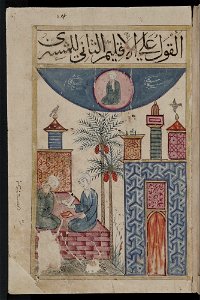 القول على الاقليم الثاني للمشتري